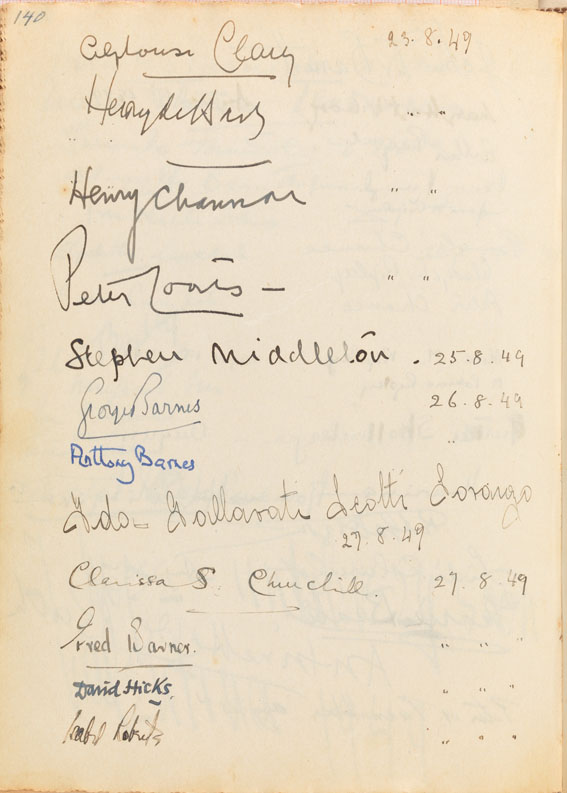 140
Alphonse Clary 23.8.49
Henry " "
Henry Channon " "
Peter Coats — " "
Stephen Middleton . 25.8.49
George Barnes 26.8.49
Anthony Barnes "
Gallarati Scotti
27.8.49
Clarissa S. Churchill. 27.8.49
Barnes. " " "
David Hicks. " " "
Isabel Roberts " " "